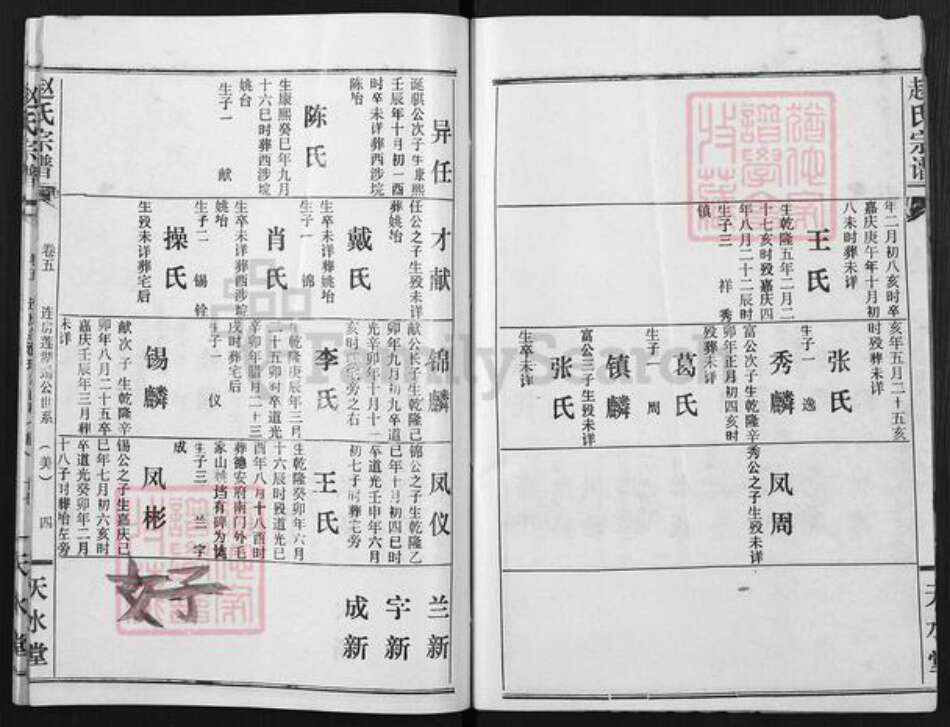 赵氏宗谱
年二月初八亥时卒
嘉庆庚午年十月初
八未时葬未详
王氏
生乾隆五年二月二
十七亥时殁嘉庆四
年八月二十二辰时
生子三 祥 秀
镇
亥年五月二十五亥
时殁葬未详
张氏
生子一 逸
秀麟
富公次子生乾隆辛
卯年正月初四亥时
殁葬未详
葛氏
生子一 周
镇麟
富公三子生殁未详
张氏
生卒未详
凤周
秀公之子生殁未详
天水堂
异任
诞骐公次子生康熙
壬辰年十月初一酉
时卒未详葬西涉垸
陈坮
陈氏
生康熙癸巳年九月
十六巳时葬西涉垸
姚台
生子一 献
才献
任公之子生殁未详
葬姚坮
戴氏
生卒未详葬姚坮
生子一 锦
肖氏
生卒未详葬西涉垸
姚坮
生子二 锡 铨
操氏
生殁未详葬宅后
锦麟
献公长子生乾隆己
卯年九月初九卒道
光辛卯年十月十一
亥时葬宅旁之右
李氏
生乾隆庚辰年三月
二十五卯时卒道光
辛卯年腊月二十三
戌时葬宅后
生子一 仪
锡麟
献次子生乾隆辛
卯年八月二十五卒
嘉庆壬辰年三月葬
未详
凤仪
锦公之子生乾隆乙
巳年十月初四巳时
卒道光壬申年六月
初七子时葬宅旁
王氏
生乾隆癸卯年六月
十六辰时殁道光己
酉年八月十八酉时
葬德安府南门外毛
家山 垱有碑为 
生子三 兰 字
成
凤彬
锡公之子生嘉庆己
巳年七月初六亥时
卒道光癸卯年二月
十八子时葬坮左旁
兰新
字新
成新
好
赵氏宗谱
卷五
连房莲湖 公世系
（美）
四
天水堂
FamilySearch